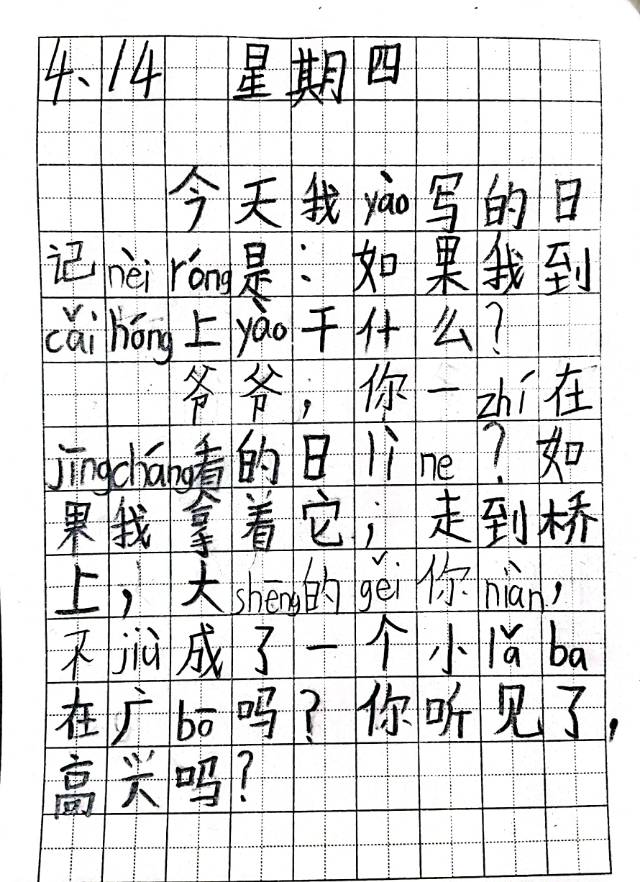 4、14 星期四
今天我yào写的日
记nèiróng是：如果我到
cǎihóng上yào干什么？
爷爷，你一zhí在
jīngcháng看的日lìne？如
果我拿着它；走到桥
上，大shēng的gěi你niàn，
不jiù成了一个小lǎba
在广bō吗？你听见了，
高兴吗？